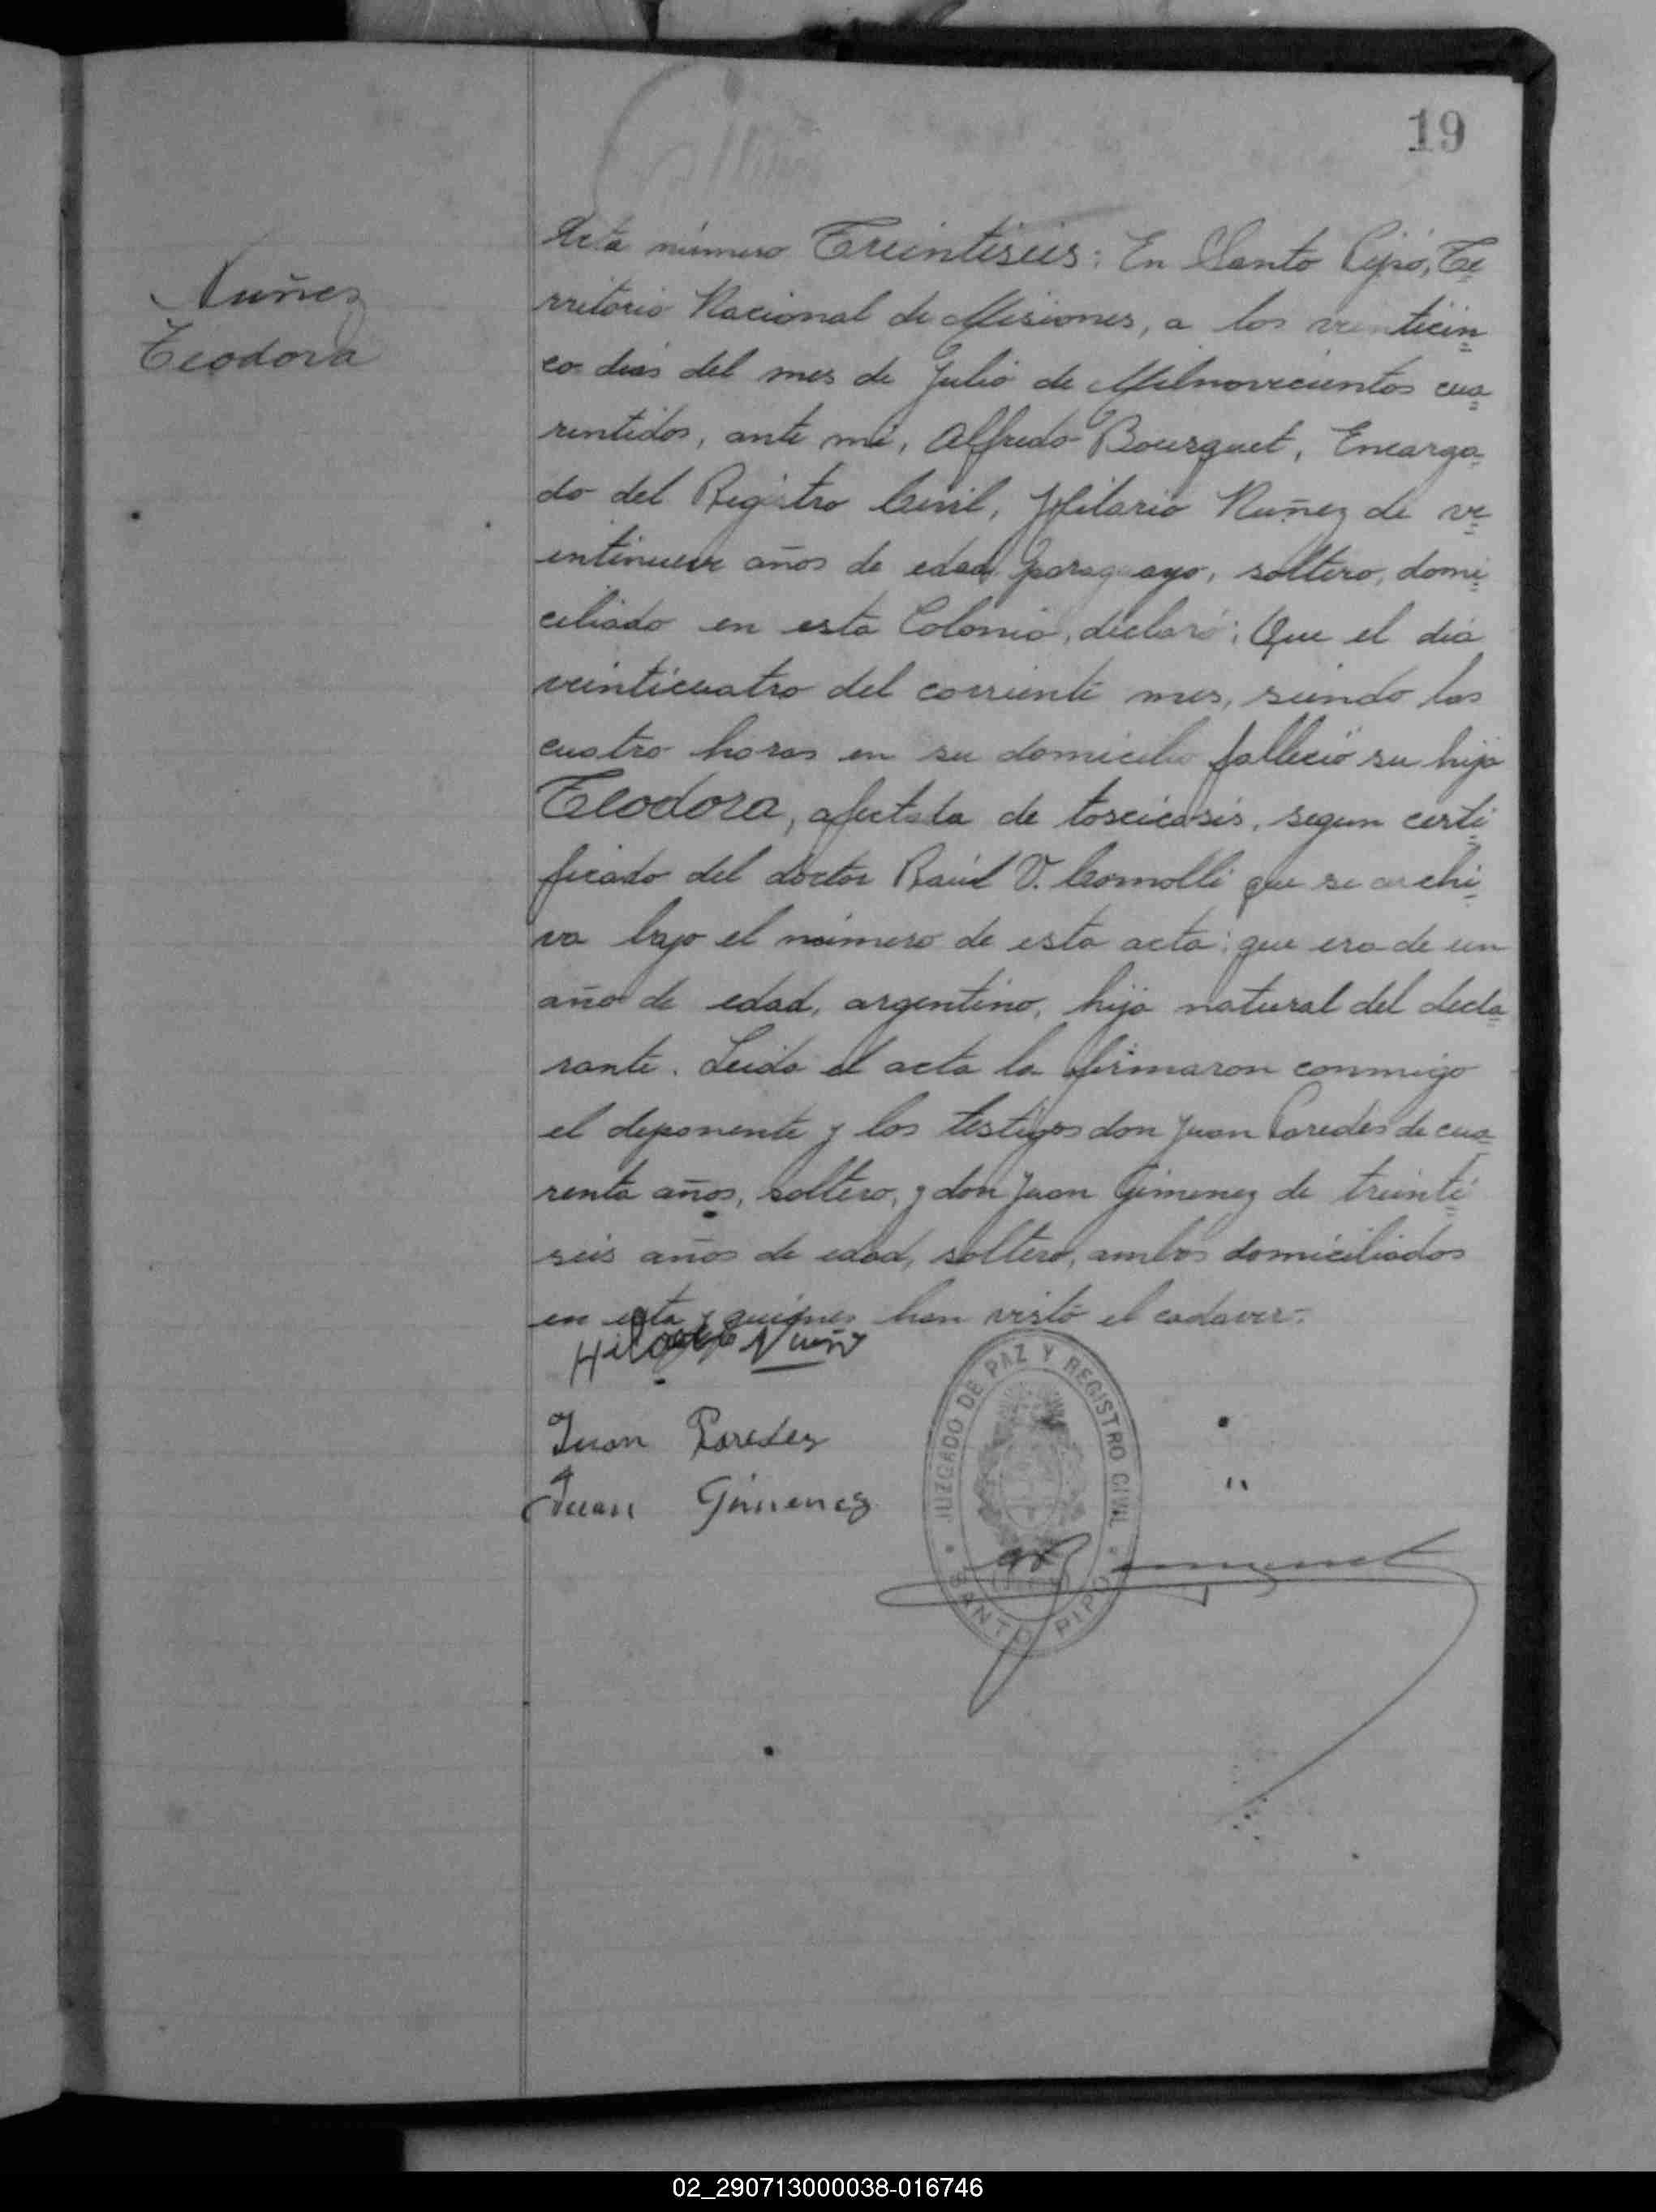 19
Nuñez
Teodora
Acta número Treintiseis: En Santo Pipó, Te
rritorio Nacional de Misiones, a los veinticin
co dias del mes de Julio de Milnovecientos cua
rentidos, ante mi, Alfredo Bourquet, Encarga
do del Registro Civil, Hilario Nuñez de ve
intinueve años de edad, paraguayo, soltero, domi
ciliado en esta Colonia, declaró: Que el dia
veinticuatro del corriente mes, siendo las
cuatro horas en su domicilio falleció su hija
Teodora, afectada de toxicosis, segun certi
ficado del doctor Raúl V. Comolli que se archi
va bajo el número de esta acta: que era de un
año de edad, argentino, hija natural del decla
rante. Leida el acta la firmaron conmigo
el deponente y los testigos don Juan Paredes de cua
renta años, soltero, y don Juan Gimenez de treinti
seis años de edad, soltero, ambos domiciliados
en esta y quienes han visto el cadaver.-
Nuñ
Juan Paredes
Juan Gimenez
JUZGADO DE PAZ Y REGISTRO CIVIL
SANTO PIPO
02_290713000038-016746